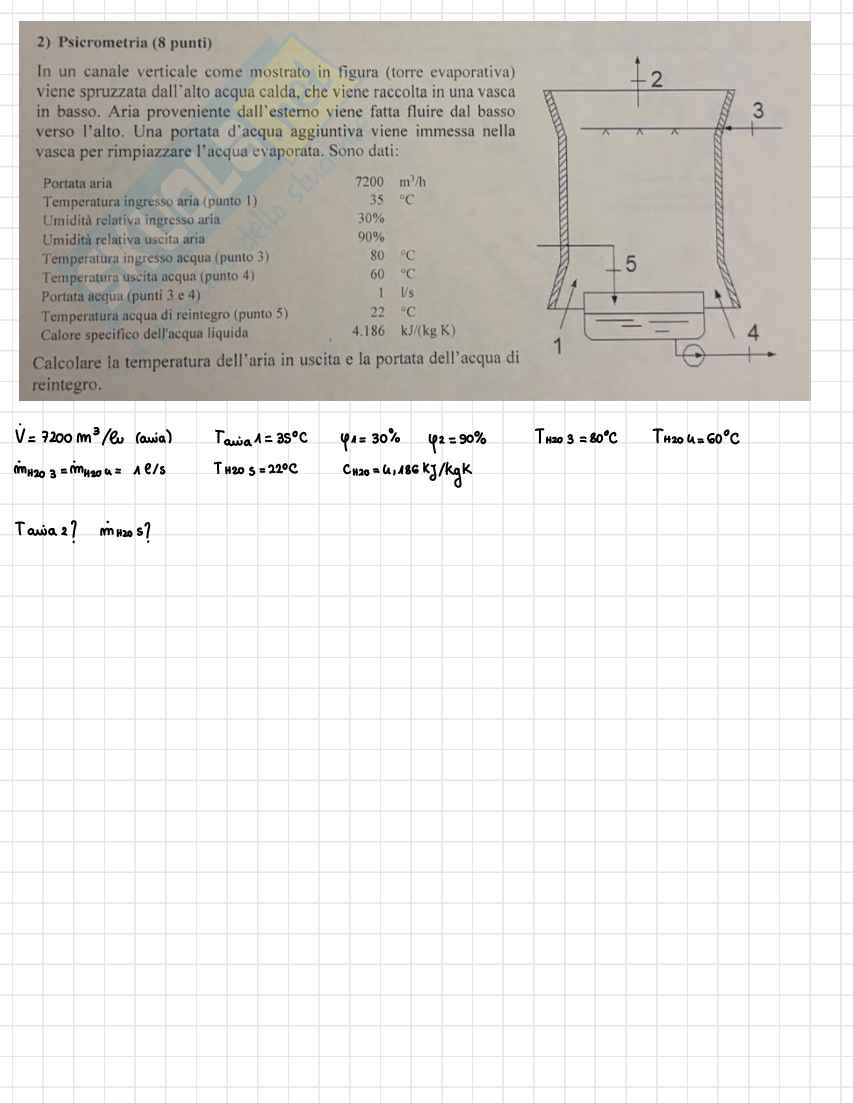 2) Psicrometria (8 punti)
In un canale verticale come mostrato in figura (torre evaporativa)
viene spruzzata dall'alto acqua calda, che viene raccolta in una vasca
in basso. Aria proveniente dall'esterno viene fatta fluire dal basso
verso l'alto. Una portata d'acqua aggiuntiva viene immessa nella
vasca per rimpiazzare l'acqua evaporata. Sono dati:
Portata aria 7200 m³/h
Temperatura ingresso aria (punto 1) 35 °C
Umidità relativa ingresso aria 30%
Umidità relativa uscita aria 90%
Temperatura ingresso acqua (punto 3) 80 °C
Temperatura uscita acqua (punto 4) 60 °C
Portata acqua (punti 3 e 4) 1 l/s
Temperatura acqua di reintegro (punto 5) 22 °C
Calore specifico dell'acqua liquida 4.186 kJ/(kg K)
Calcolare la temperatura dell'aria in uscita e la portata dell'acqua di
reintegro.
2
3
5
1
4
V̇ = 7200 m³/h (aria) Taria 1 = 35°C φ1 = 30% φ2 = 90% TH2O 3 = 80°C TH2O 4 = 60°C
ṁH2O 3 = ṁH2O 4 = 1 l/s TH2O 5 = 22°C CH2O = 4,186 kJ/kgK
Taria 2? ṁH2O 5?